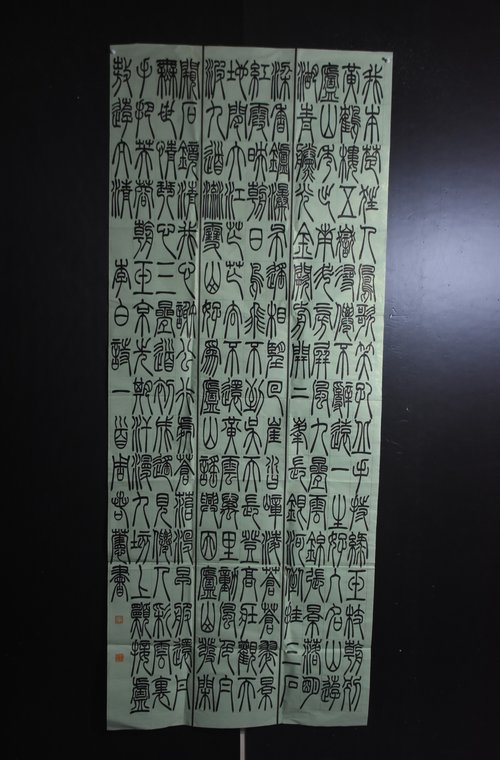 我本楚狂人鳳歌笑孔丘手持綠玉枝朝別
黃鶴樓五嶽尋僊不辭遠一生好入名山遊
廬山秀出南斗旁屏風九疊雲錦張景落明
湖青黛光金闕前開二峯長銀河倒挂三石
梁香鑪瀑布遙相望回崖沓嶂凌蒼蒼翠景
紅霞映朝日鳥飛不到吳天長登高壯觀天
地間大江茫茫去不還黃雲萬里動風色白
波九道流雪山好為廬山謠興因廬山發閑
闚石鏡清我心謝公行處蒼苔沒早服還丹
無世情琴心三疊道初成遙見僊人彩雲裏
手把芙蓉朝玉京先期汗漫九垓上願接盧
敖遊太清 李白詩一首 書